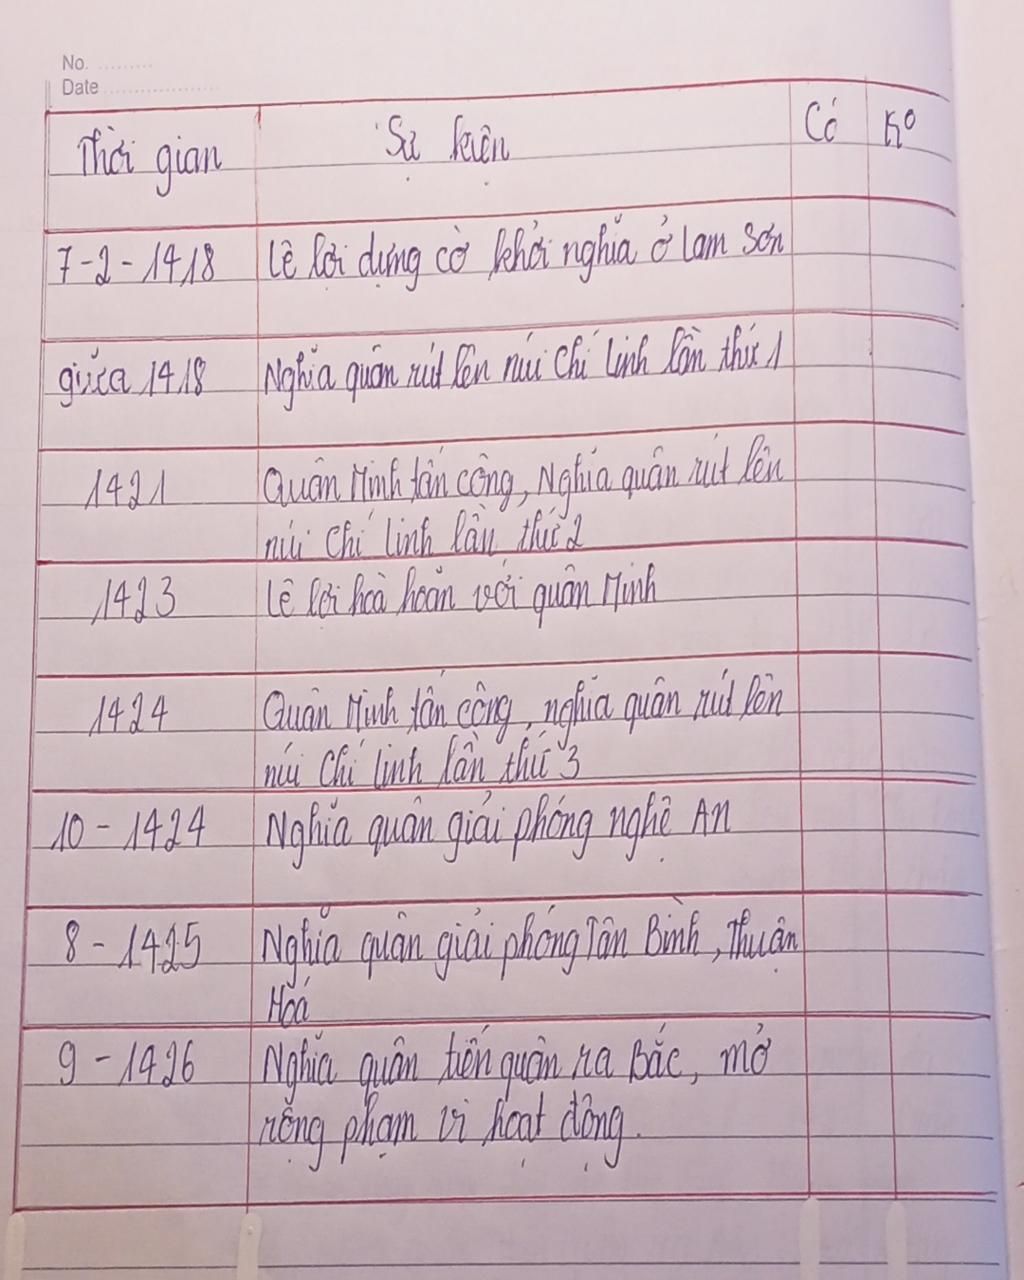 No. ..........
Date ....................
Thời gian Sự kiện Có K°
7-2-1418 Lê Lợi dựng cờ khởi nghĩa ở Lam Sơn
giữa 1418 Nghĩa quân rút lên núi Chí Linh lần thứ 1
1421 Quân Minh tấn công, Nghĩa quân rút lên
núi Chí Linh lần thứ 2
1423 Lê Lợi hoà hoãn với quân Minh
1424 Quân Minh tấn công, nghĩa quân rút lên
núi Chí Linh lần thứ 3
10-1424 Nghĩa quân giải phóng nghệ An
8-1425 Nghĩa quân giải phóng Tân Bình, Thuận
Hoá
9-1426 Nghĩa quân tiến quân ra Bắc, mở
rộng phạm vi hoạt động.